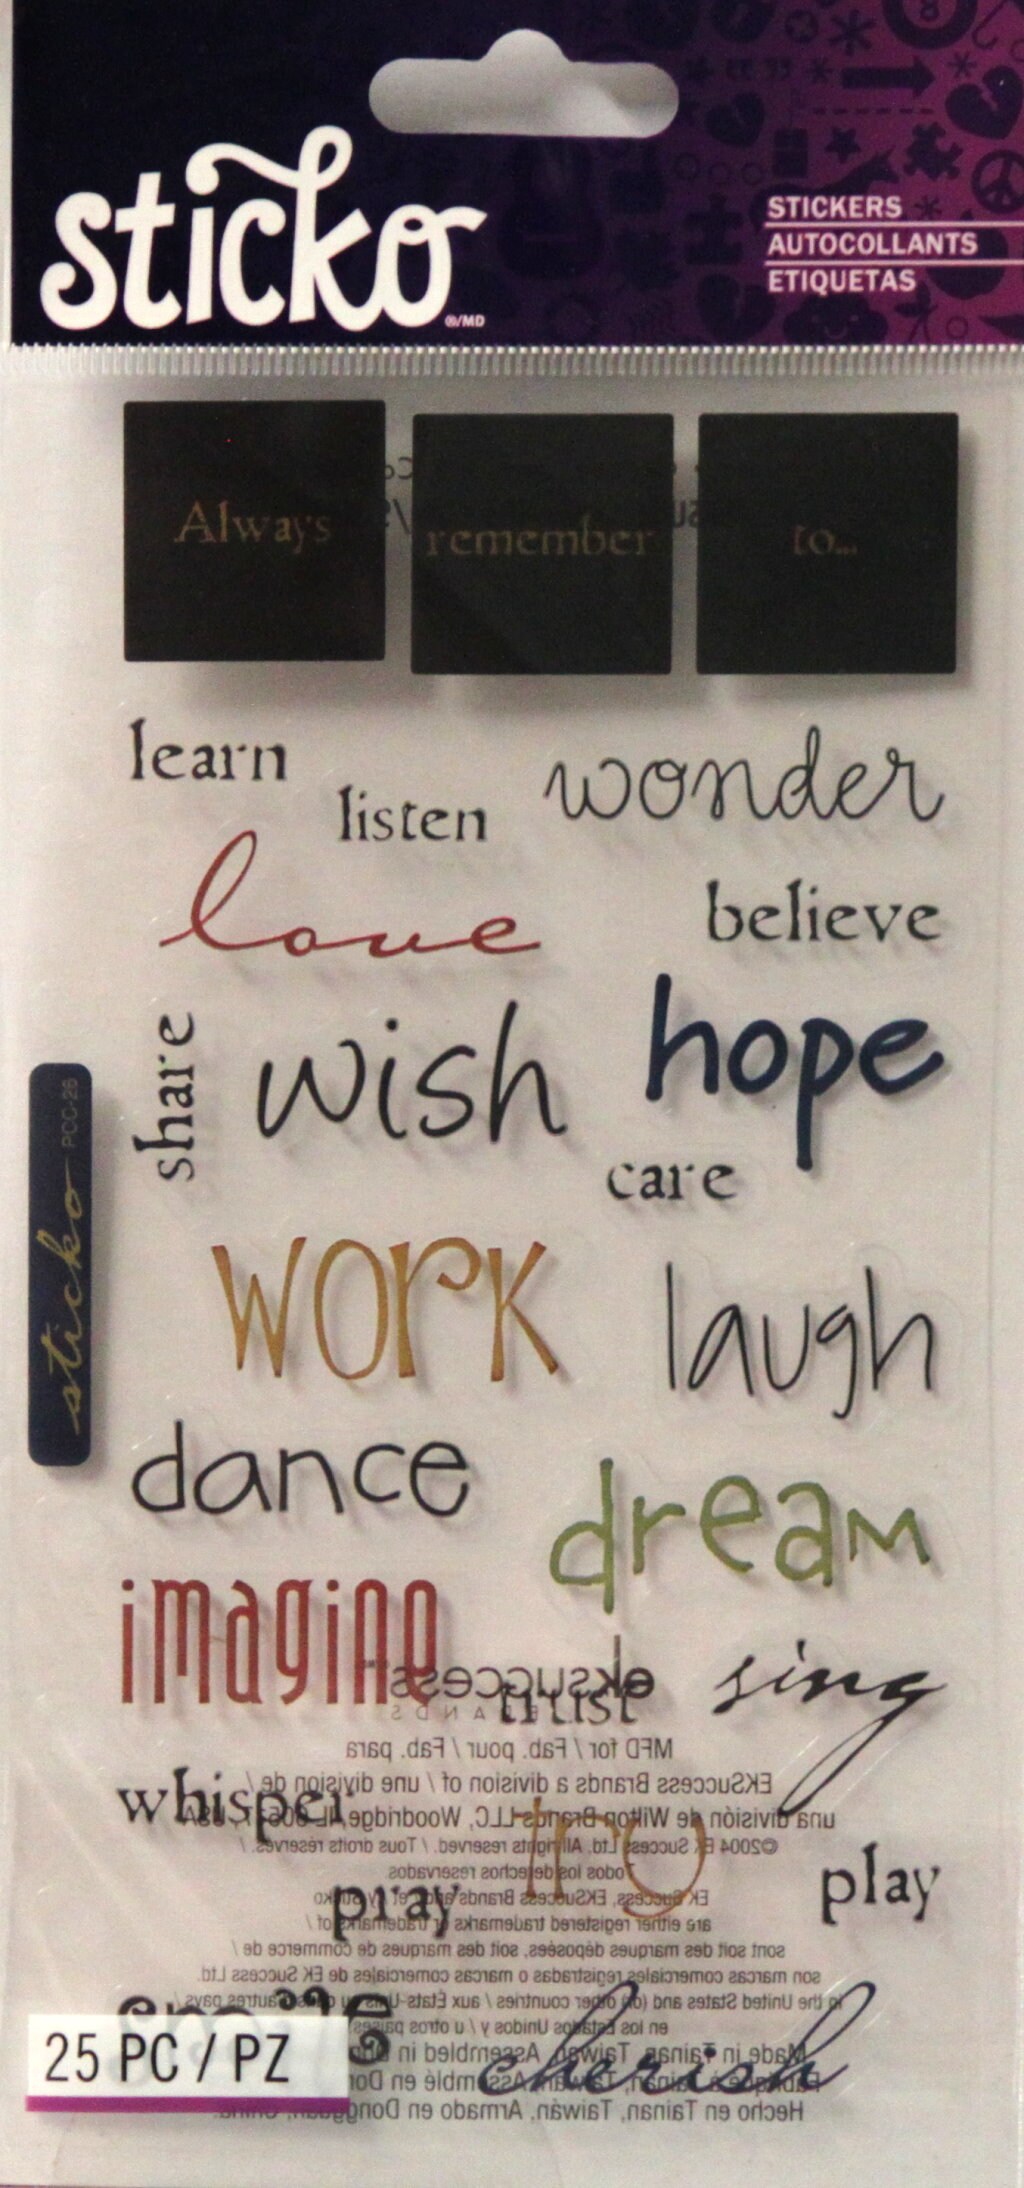 sticko
®/MD
STICKERS
AUTOCOLLANTS
ETIQUETAS
Always remember to...
learn
wonder
listen
love
believe
share
wish
hope
care
sticko PCC-26
work
laugh
dance
dream
imagine
sing
trust
eksuccess
BRANDS
MFD for / Fab. pour / Fab. para
whisper
EKSuccess Brands a division of / une division de /
una división de Wilton Brands LLC, Woodridge, IL USA
try
©2004 EK Success Ltd. All rights reserved. / Tous droits réservés. /
Todos los derechos reservados
play
pray
EK Success, EKSuccess Brands et sticko
are either registered trademarks or trademarks of /
sont soit des marques déposées, soit des marques de commerce de /
son marcas comerciales registradas o marcas comerciales de EK Success Ltd.
in the United States and (or) other countries / aux États-Unis ou autres pays /
en los Estados Unidos y / u otros países.
cherish
25 PC / PZ
Made in Tainan, Taiwan, Assembled in
Fabriqué à Tainan, Taiwan, Assemblé en
Hecho en Tainan, Taiwán, Armado en Dongguan, China.